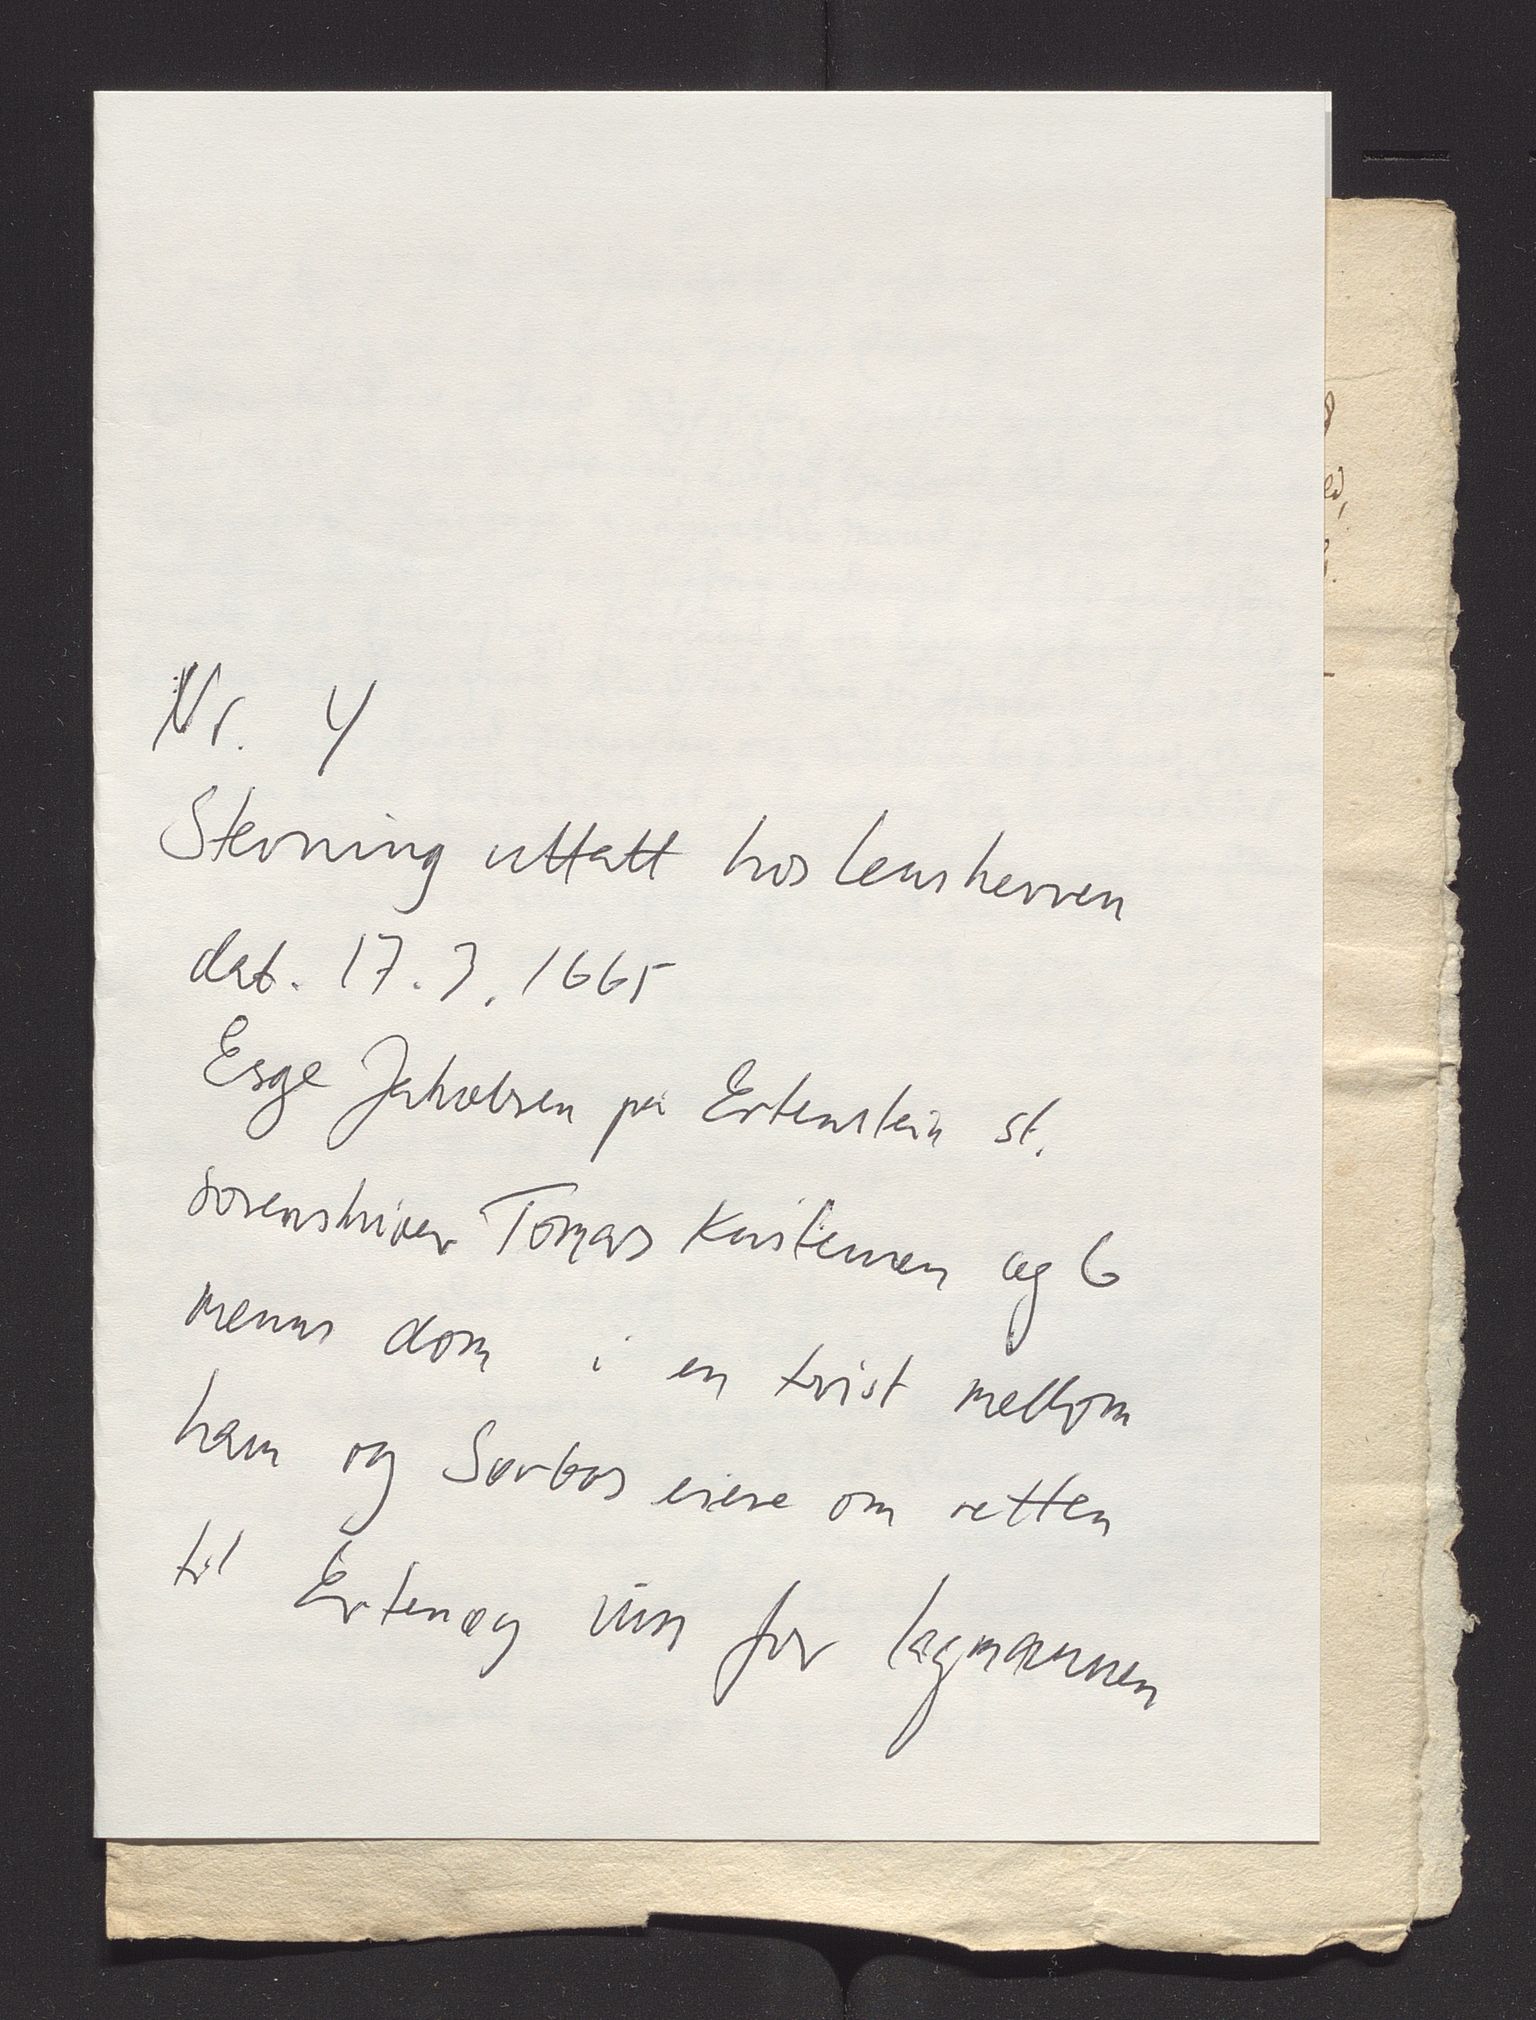 Nr. 4
Stevning uttatt hos lensherren
dat. 17.3.1665
Esge Jakobsen på Ertenstein st.
sorenskriver Tomas Kristensen og 6
menns dom i en tvist mellom
ham og Sørbøs eiere om retten
til Ertenøy inn for lagmannen